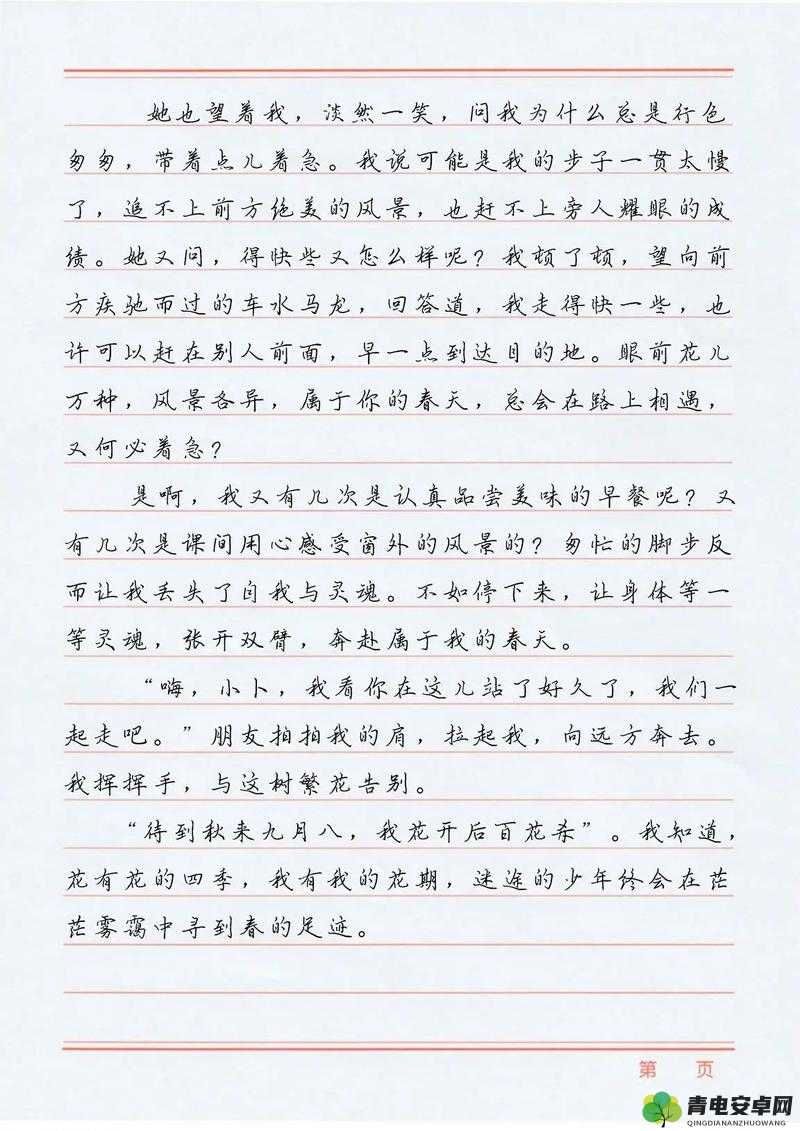 她也望着我，淡然一笑，问我为什么总是行色
匆匆，带着点儿着急。我说可能是我的步子一贯太慢
了，追不上前方绝美的风景，也赶不上旁人耀眼的成
绩。她又问，得快些又怎么样呢？我顿了顿，望向前
方疾驰而过的车水马龙，回答道，我走得快一些，也
许可以赶在别人前面，早一点到达目的地。眼前花儿
万种，风景各异，属于你的春天，总会在路上相遇，
又何必着急？
是啊，我又有几次是认真品尝美味的早餐呢？又
有几次是课间用心感受窗外的风景的？匆忙的脚步反
而让我丢失了自我与灵魂。不如停下来，让身体等一
等灵魂，张开双臂，奔赴属于我的春天。
“嗨，小卜，我看你在这儿站了好久了，我们一
起走吧。”朋友拍拍我的肩，拉起我，向远方奔去。
我挥挥手，与这树繁花告别。
“待到秋来九月八，我花开后百花杀”。我知道，
花有花的四季，我有我的花期，迷途的少年终会在茫
茫雾霭中寻到春的足迹。
第 页
青电安卓网
QINGDIANANZHUOWANG